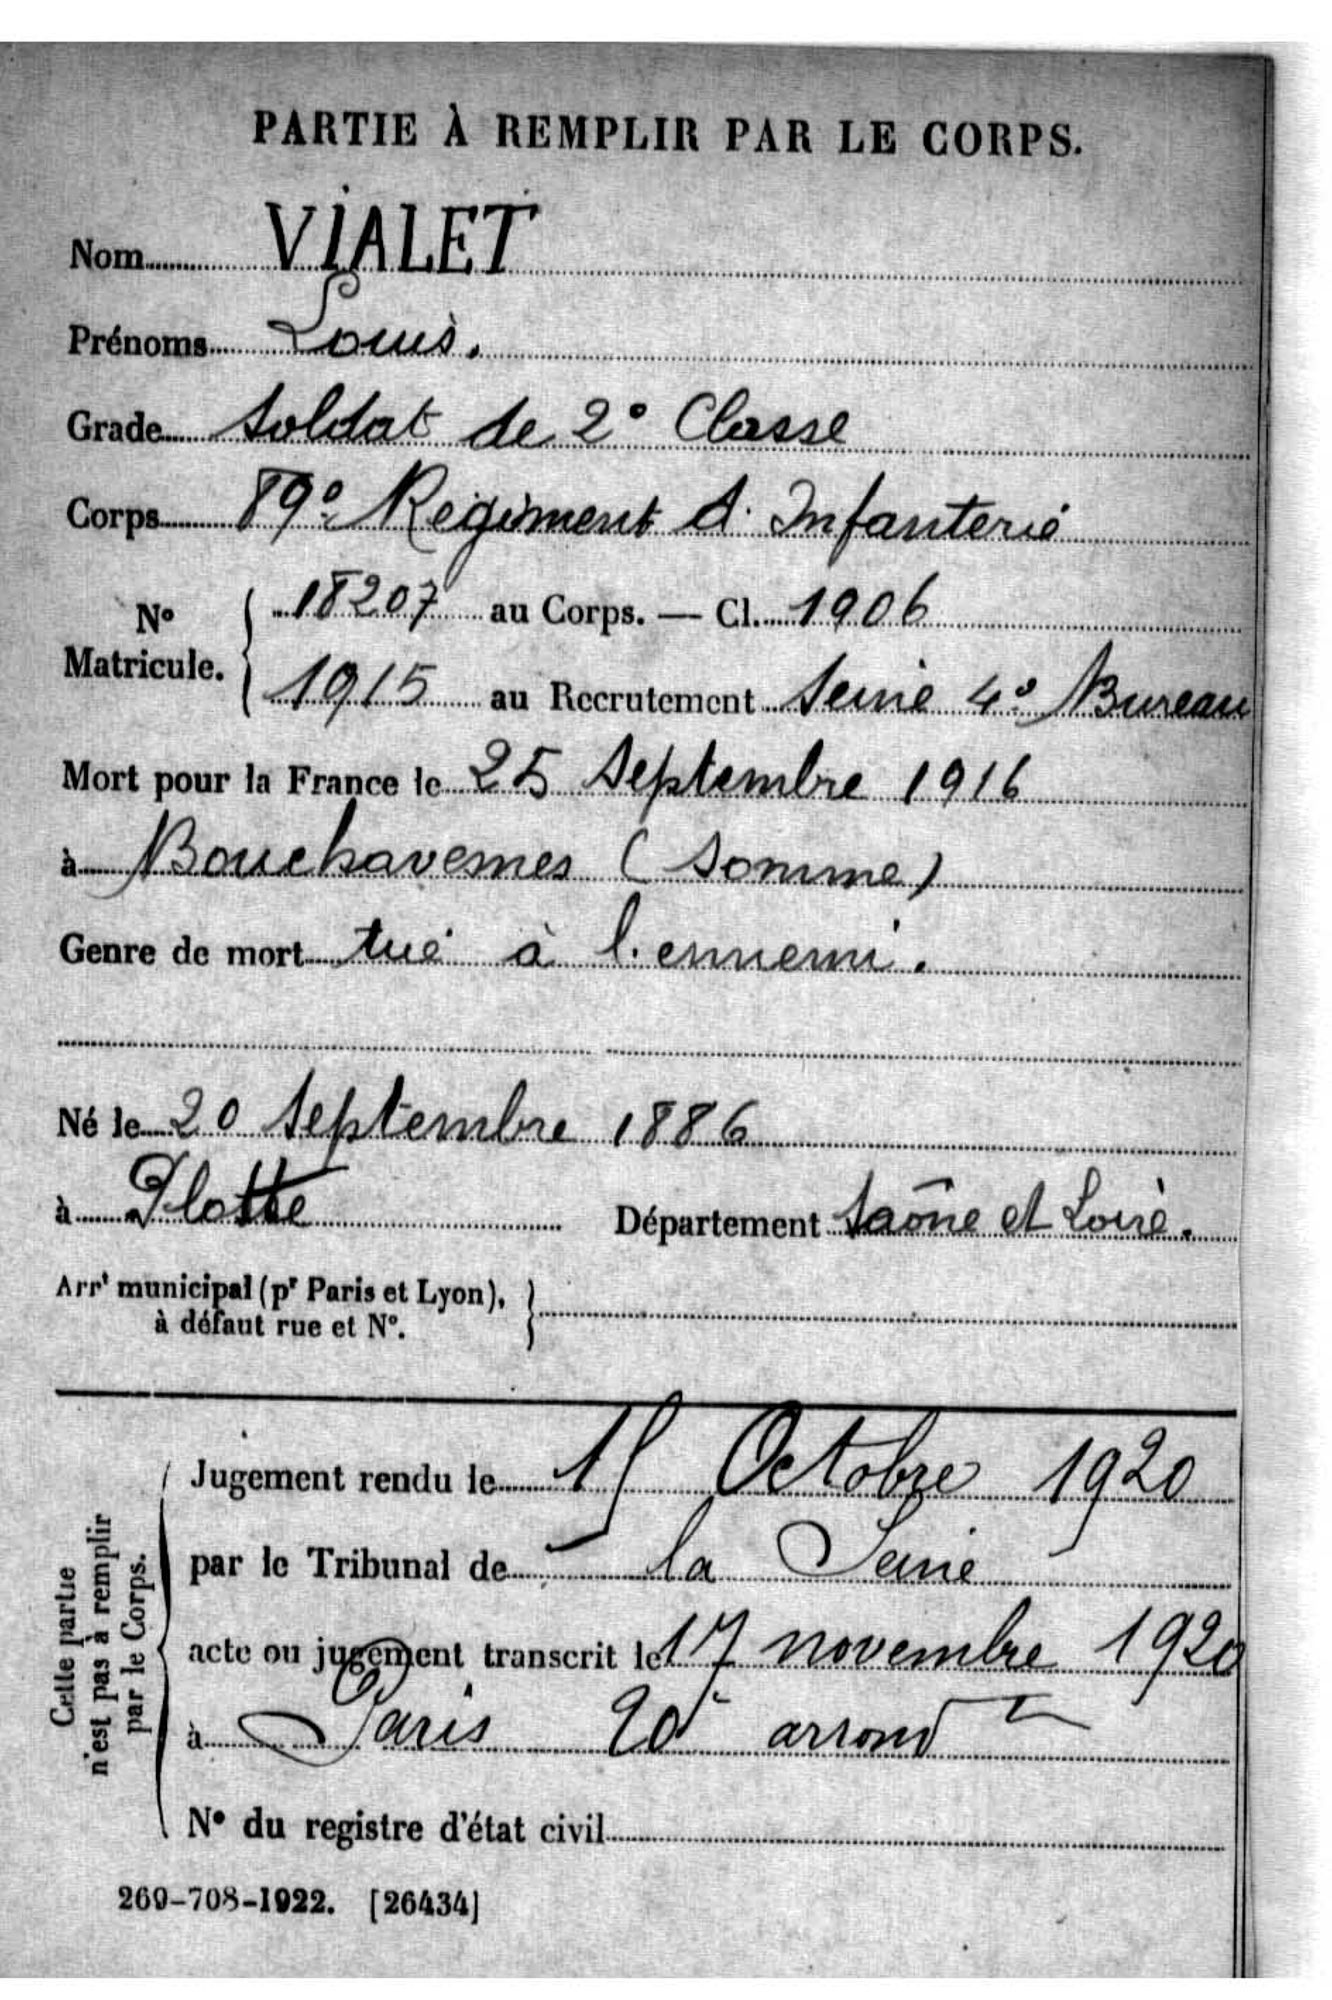 PARTIE À REMPLIR PAR LE CORPS.
Nom VIALET
Prénoms Louis.
Grade Soldat de 2° Classe
Corps 89° Régiment d'Infanterie
N° Matricule. 18207 au Corps. — Cl. 1906
1915 au Recrutement Seine 4° Bureau
Mort pour la France le 25 Septembre 1916
à Bouchavesnes (Somme)
Genre de mort tué à l'ennemi.
Né le 20 Septembre 1886
à Flotte Département Saône et Loire.
Arrt municipal (pr Paris et Lyon),
à défaut rue et N°.
Cette partie
n'est pas à remplir
par le Corps.
Jugement rendu le 15 Octobre 1920
par le Tribunal de la Seine
acte ou jugement transcrit le 17 novembre 1920
à Paris 20e arrondt
N° du registre d'état civil
269-708-1922. [26434]